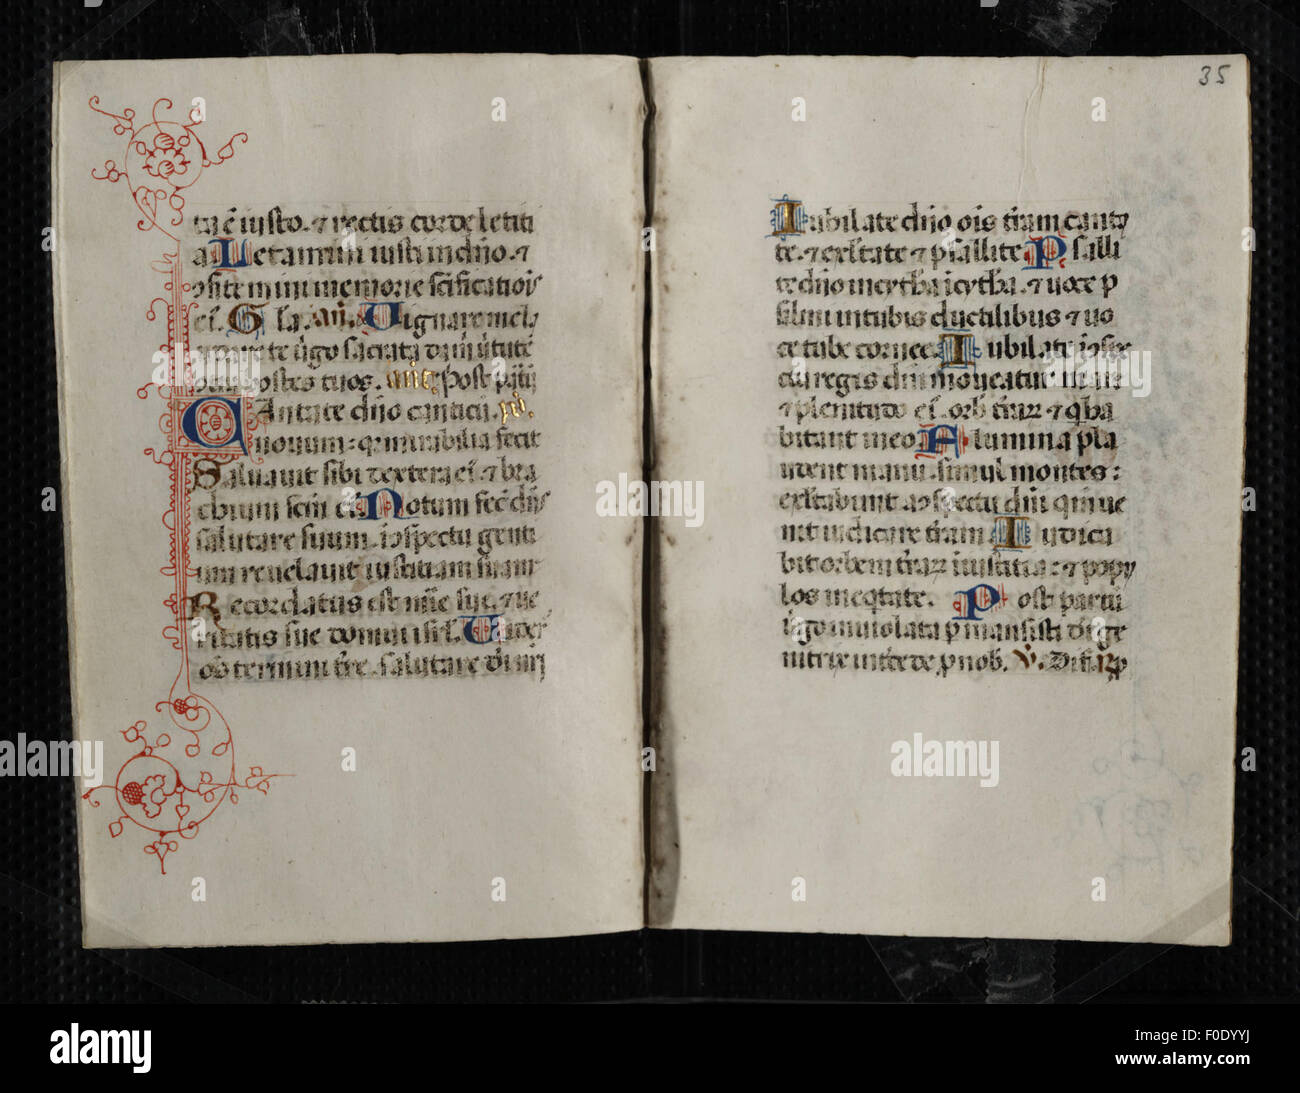 ta ē iusto. ⁊ rectis corde letiti
a Letamini iusti in dn̄o. ⁊
ɔfitemini memorie sc̄ificatiōis
ei'. Gl̄a. an̄. Dignare me la
udare te v̄go sacrata da m̄ v̄tutē
hostes tuos. an̄t. Post p̄tū
Cantate dn̄o canticū. ps̄.
nouum: q̄ mirabilia fecit
Saluauit sibi dextera ei'. ⁊ bra
chium sc̄m ei' Notum fec̄ dn̄s
salutare suum. ī ɔspectu genti
um reuelauit iustitiam suam
Recordatus est mīe sue. ⁊ ue
ritatis sue domui isrl̄. Uider
ōs termini tr̄e. salutare dī nr̄i
35
Iubilate dn̄o oīs tr̄a m cantą
te. ⁊ exl̄tate ⁊ psallite. Psalli
te dn̄o in cythā ī cythā. ⁊ uoce p
salmi in tubis ductilibus ⁊ uo
ce tube cornee. Iubilate ī ɔspe
ctu regis dn̄i moueatur mare
⁊ plenitudo ei'. orb' trār ⁊ q̄ hą
bitant in eo Flumina pla
udent manu. simul montes:
exl̄tabunt a ɔspectu dn̄i qm̄ ue
nit iudicare tr̄am. Iudica
bit orbem trār in iustitia: ⁊ popu
los in eq̄tate. Post partū
v̄go inuiolata p̄mansisti dī ge
nitrix int̄cede p̄ nob. V̄. Diff.
alamy
Image ID: F0DYYJ
www.alamy.com